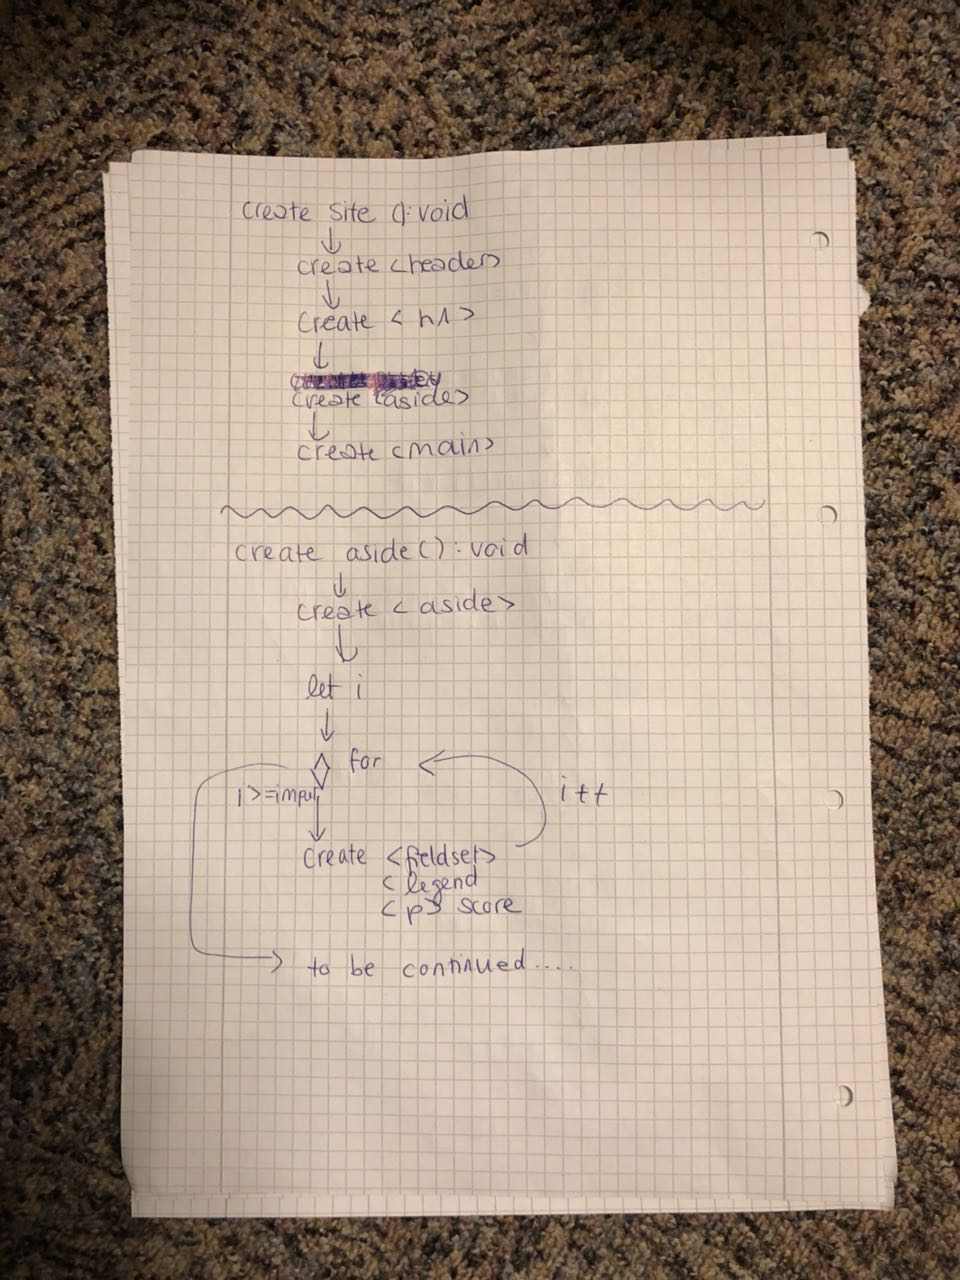 create site (): void
create <header>
create <h1>
create <aside>
create <main>
create aside(): void
create <aside>
let i
for
i>=input
i++
create <fieldset>
<legend
<p> score
to be continued....